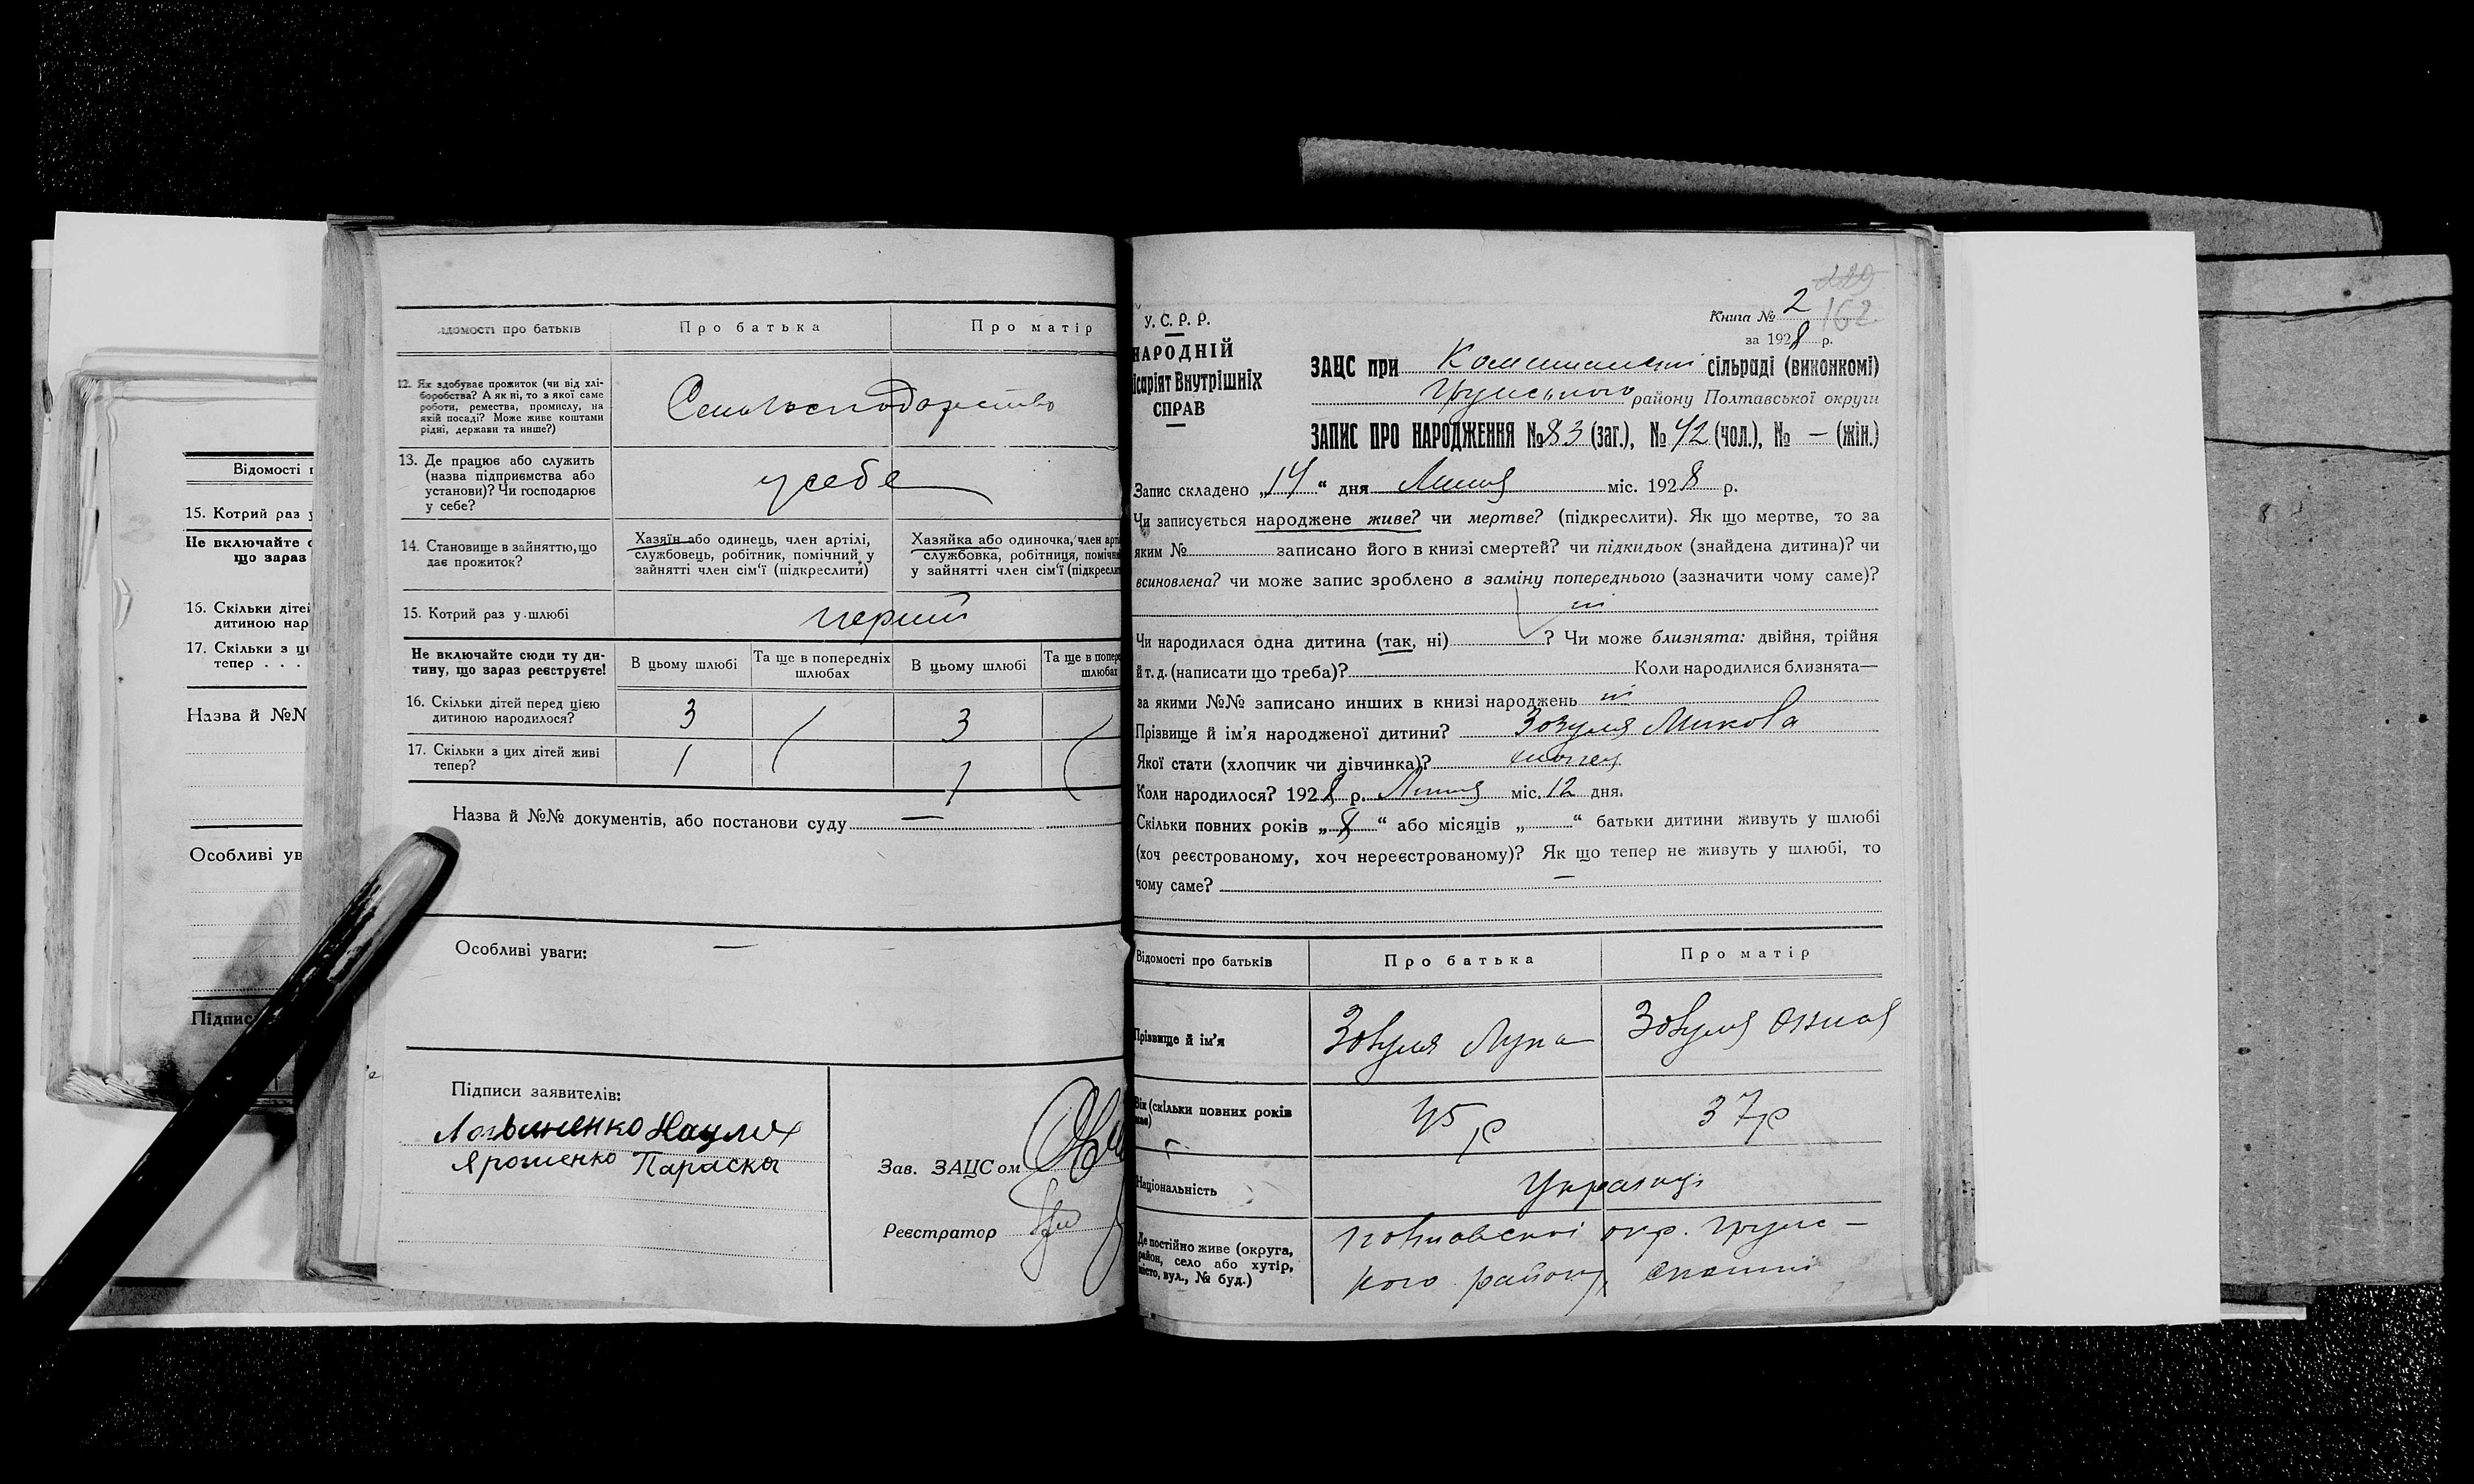 Відомості п
15. Котрий раз у
Не включайте с
що зараз
16. Скільки дітей
дитиною нар
17. Скільки з ци
тепер . . .
Назва й №№
Особливі ув
Підпис
ідомості про батьків
Про батька
Про матір
12. Як здобуває прожиток (чи від хлі-
боробства? А як ні, то з якої саме
роботи, ремества, промислу, на
якій посаді? Може живе коштами
рідні, держави та инше?)
Сельгосподарство
13. Де працює або служить
(назва підприємства або
установи)? Чи господарює
у себе?
у себе
14. Становище в зайняттю, що
дає прожиток?
Хазяїн або одинець, член артілі,
службовець, робітник, помічний у
зайнятті член сім'ї (підкреслити)
Хазяйка або одиночка, член арті
службовка, робітниця, помічн
у зайнятті член сім'ї (підкресли
15. Котрий раз у шлюбі
перший
Не включайте сюди ту ди-
тину, що зараз реєструєте!
В цьому шлюбі
Та ще в попередніх
шлюбах
В цьому шлюбі
Та ще в попере
шлюбах
16. Скільки дітей перед цією
дитиною народилося?
3
3
17. Скільки з цих дітей живі
тепер?
1
1
Назва й №№ документів, або постанови суду —
Особливі уваги: —
Підписи заявителів:
Логвиненко Наум
Ярошенко Параска
Зав. ЗАЦСом
Реєстратор
У. С. Р. Р.
НАРОДНІЙ
ісаріят Внутрішніх
СПРАВ
Книга № 2
162
за 1928 р.
ЗАЦС при сільраді (виконкомі)
Грунського району Полтавської округи
ЗАПИС ПРО НАРОДЖЕННЯ № 83 (заг.), № 42 (чол.), № — (жін.)
Запис складено „14“ дня Липня міс. 1928 р.
Чи записується народжене живе? чи мертве? (підкреслити). Як що мертве, то за
яким № записано його в книзі смертей? чи підкидьок (знайдена дитина)? чи
всиновлена? чи може запис зроблено в заміну попереднього (зазначити чому саме)?
ні
Чи народилася одна дитина (так, ні) ? Чи може близнята: двійня, трійня
й т. д. (написати що треба)? Коли народилися близнята—
за якими №№ записано инших в книзі народжень ні
Прізвище й ім'я народженої дитини? Зозуля Микола
Якої стати (хлопчик чи дівчинка)? хлопец
Коли народилося? 1928 р. Липня міс. 12 дня.
Скільки повних років „8“ або місяців „ “ батьки дитини живуть у шлюбі
(хоч реєстрованому, хоч нереєстрованому)? Як що тепер не живуть у шлюбі, то
чому саме? —
Відомості про батьків
Про батька
Про матір
Прізвище й ім'я
Зозуля Лука
Зозуля
Вік (скільки повних років
має)
45 р
37 р
Національність
Українці
Де постійно живе (округа,
район, село або хутір,
місто, вул., № буд.)
Полтавської окр. Грунс-
кого району